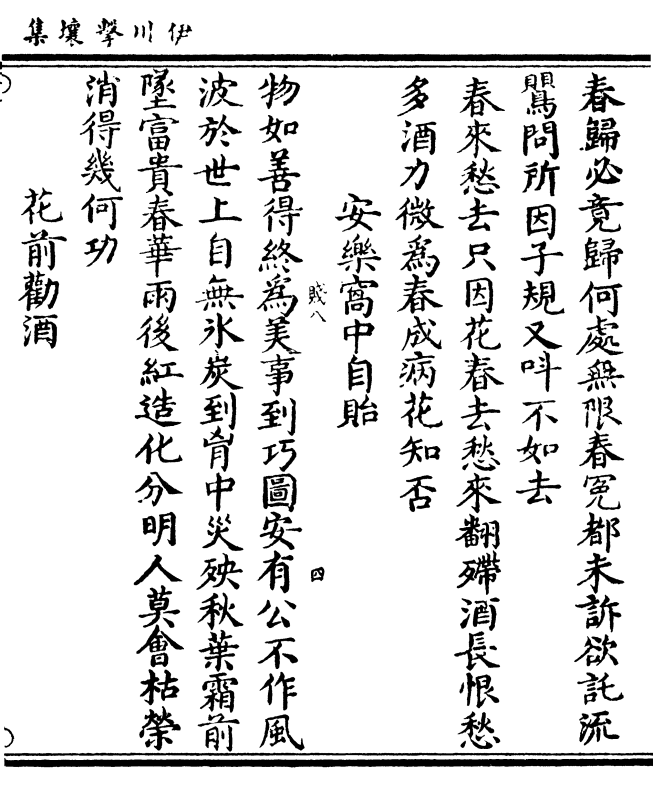 伊川擊壤集
春歸必竟歸何處無限春冤都未訴欲託流
鸎問所因子規又呌不如去
春來愁去只因花春去愁來翻殢酒長恨愁
多酒力微爲春成病花知否
安樂窩中自貽
賤八
四
物如善得終爲美事到巧圖安有公不作風
波於世上自無氷炭到胷中災殃秋葉霜前
墜富貴春華雨後紅造化分明人莫會枯榮
消得幾何功
花前勸酒